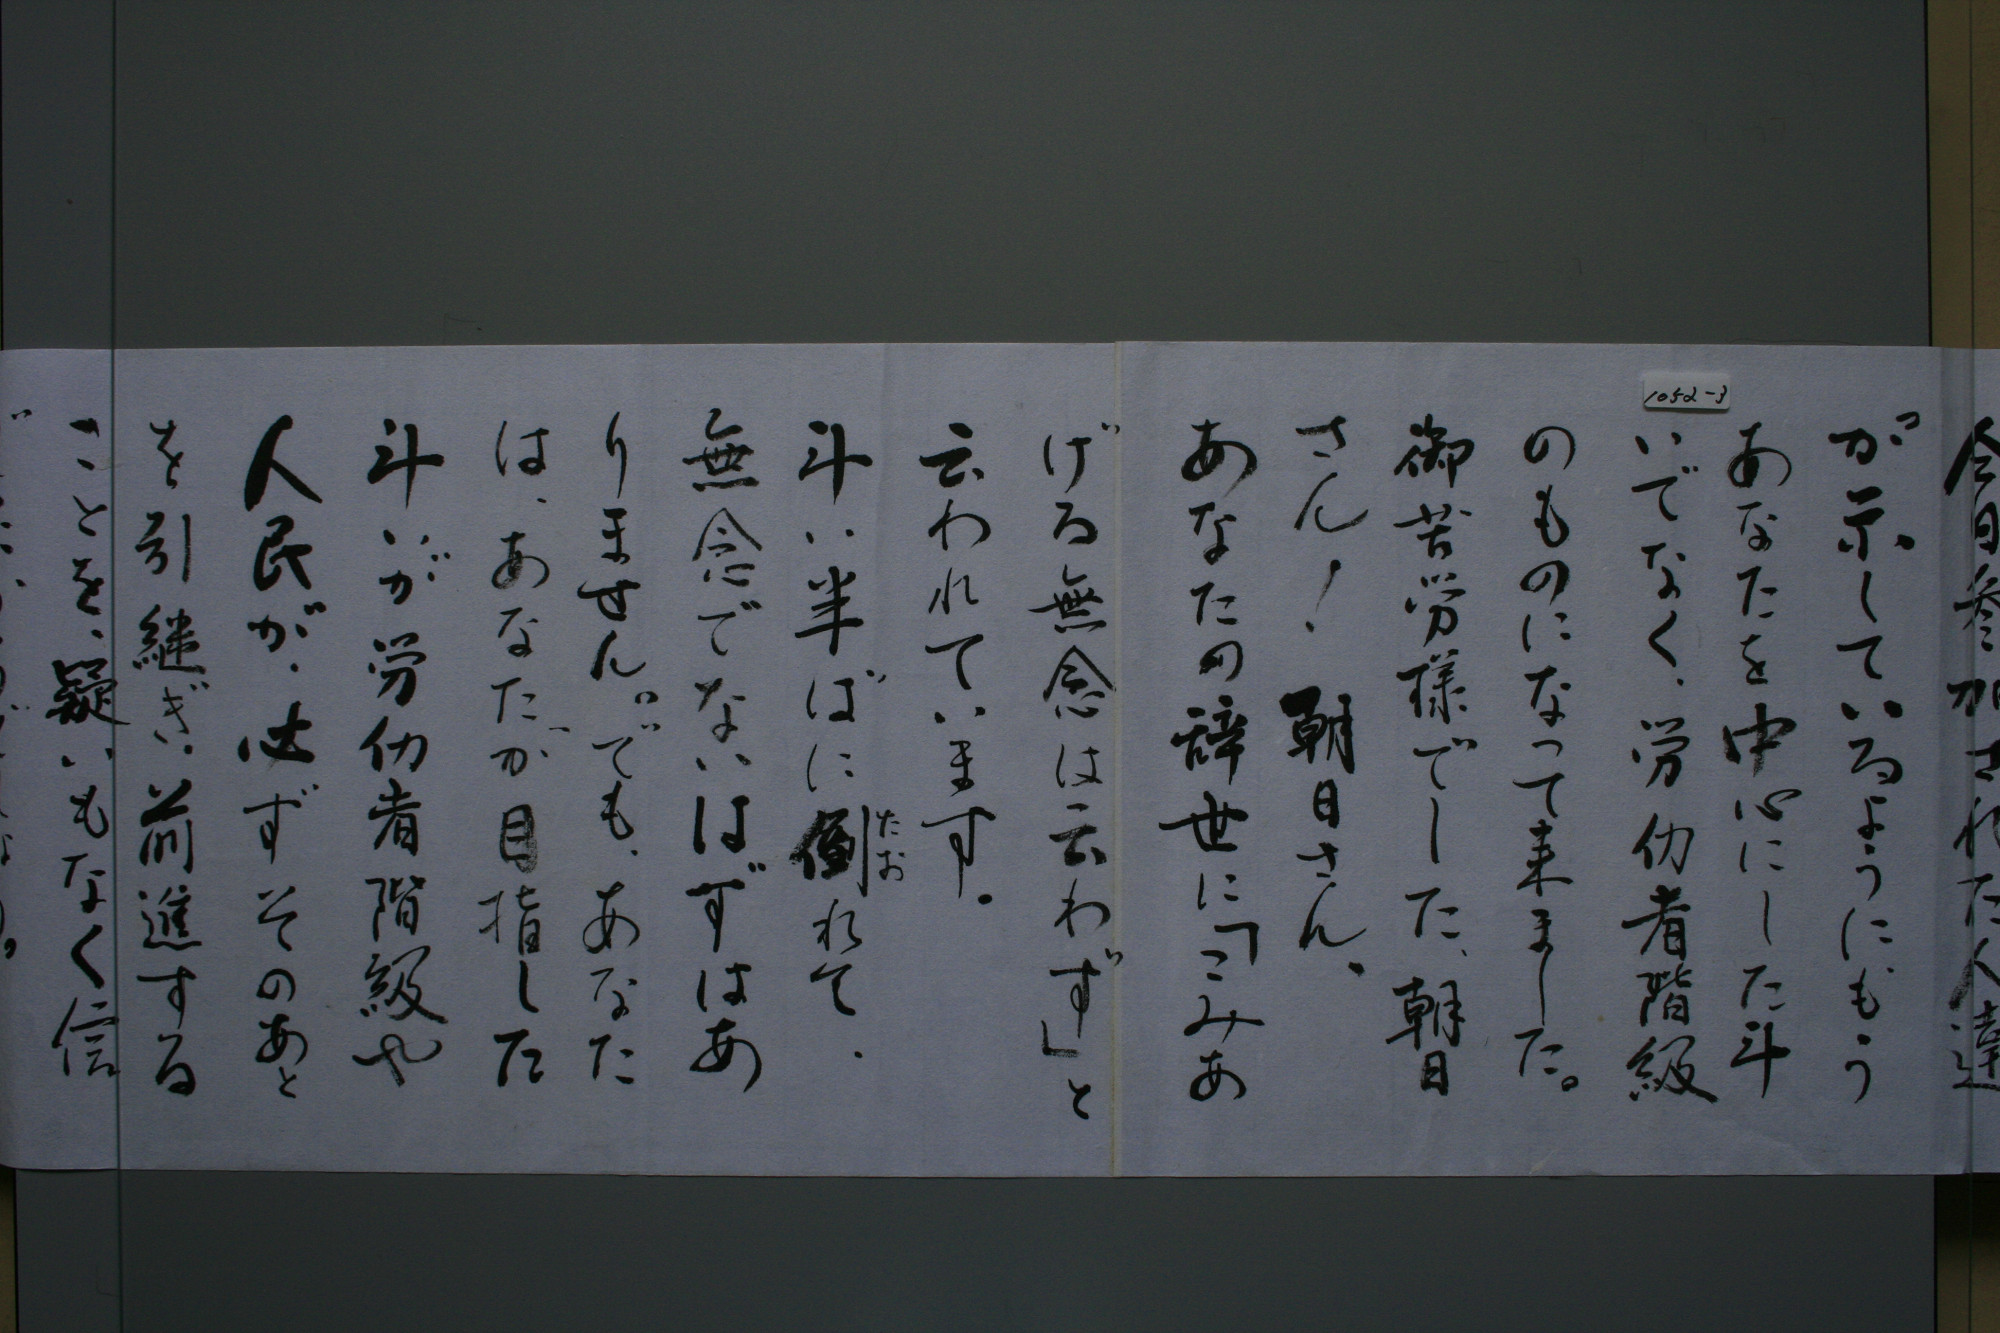 1052-3
今日参加された人達
が示しているように、もう
あなたを中心にした斗
いでなく、労仂者階級
のものになって来ました。
御苦労様でした、朝日
さん！朝日さん、
あなたの辞世に「こみあ
げる無念は云わず」と
云われています。
斗い半ばに倒れて、
たお
無念でないはずはあ
りません。でも、あなた
は、あなたが目指した
斗いが労仂者階級や
人民が、必ずそのあと
を引継ぎ、前進する
ことを、疑いもなく信